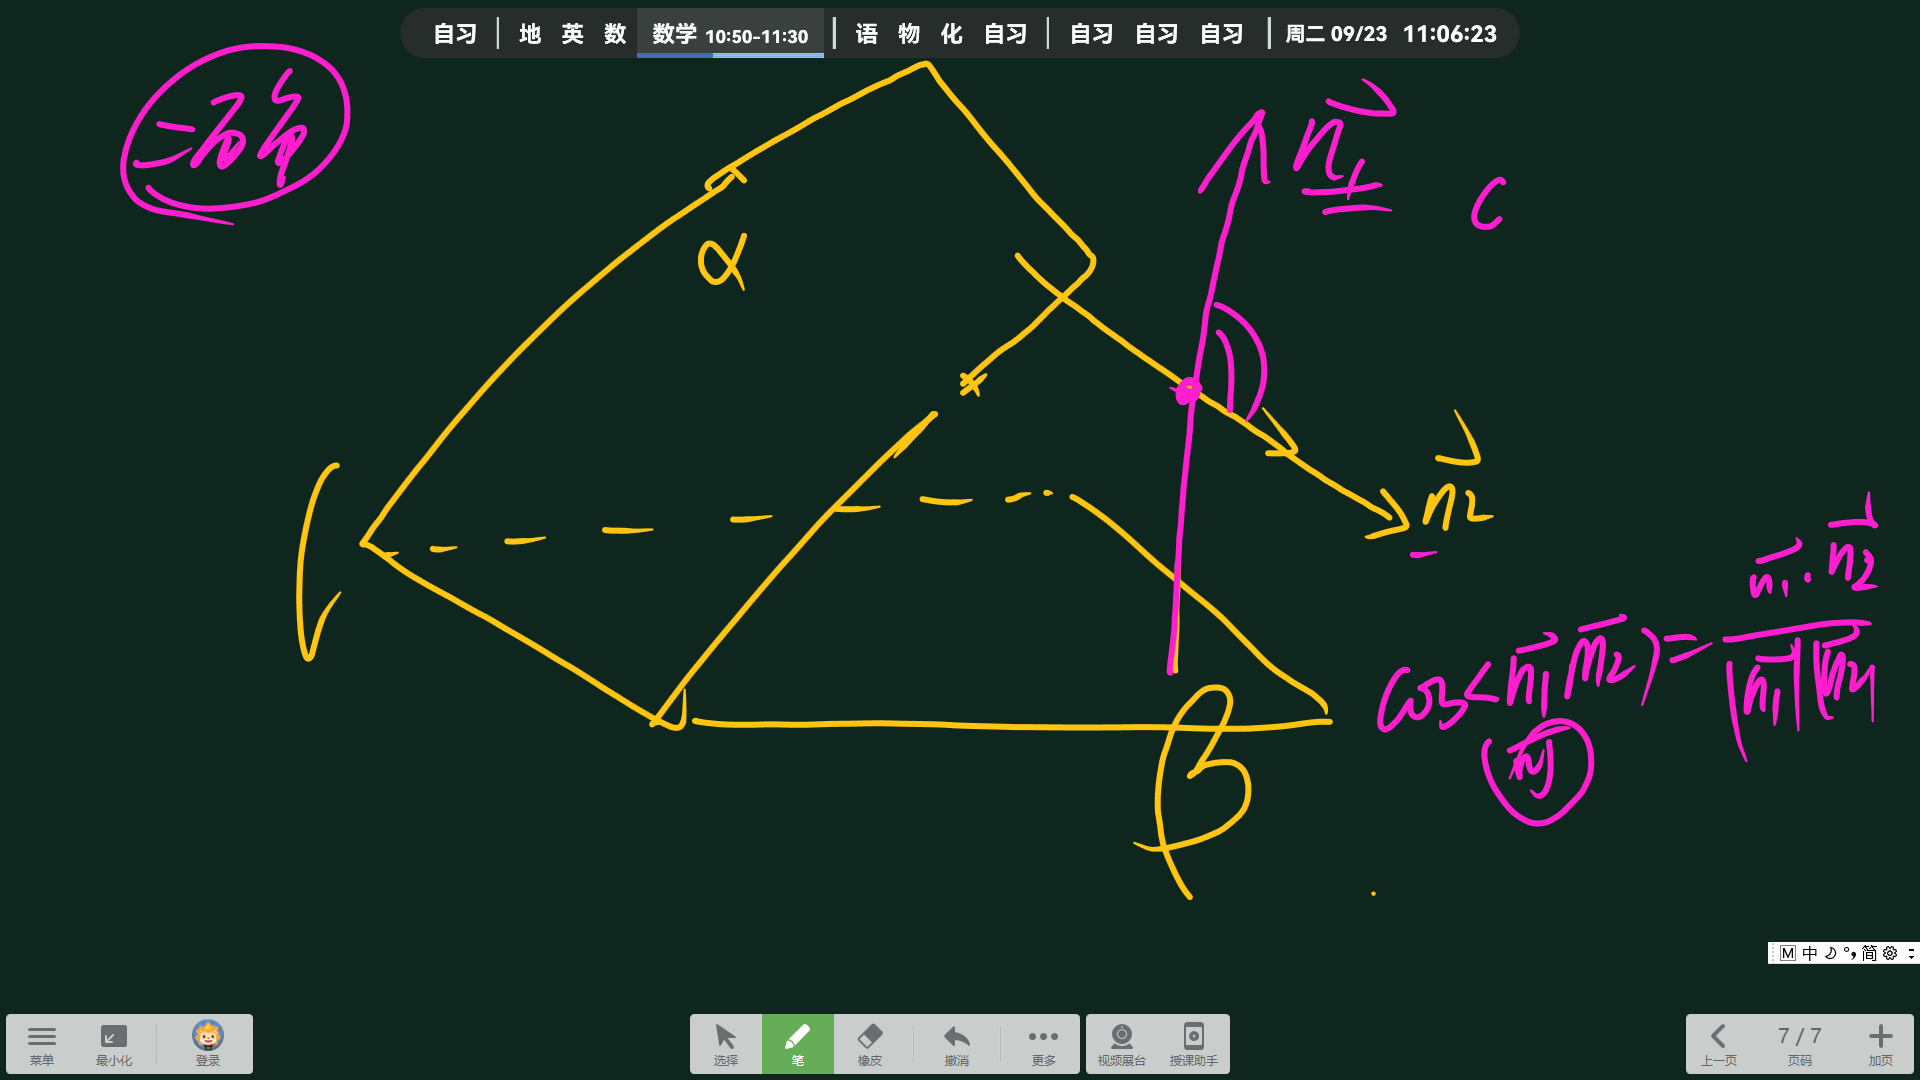 自习 | 地 英 数 数学 10:50-11:30 | 语 物 化 自习 | 自习 自习 自习 | 周二 09/23 11:06:23
二面角
n₁
C
α
n₂
n₁·n₂
cos<n₁ n₂>=
|n₁||n₂|
β
M 中 简
菜单 最小化 登录 选择 笔 橡皮 撤消 更多 视频展台 授课助手 上一页 7 / 7 页码 加页